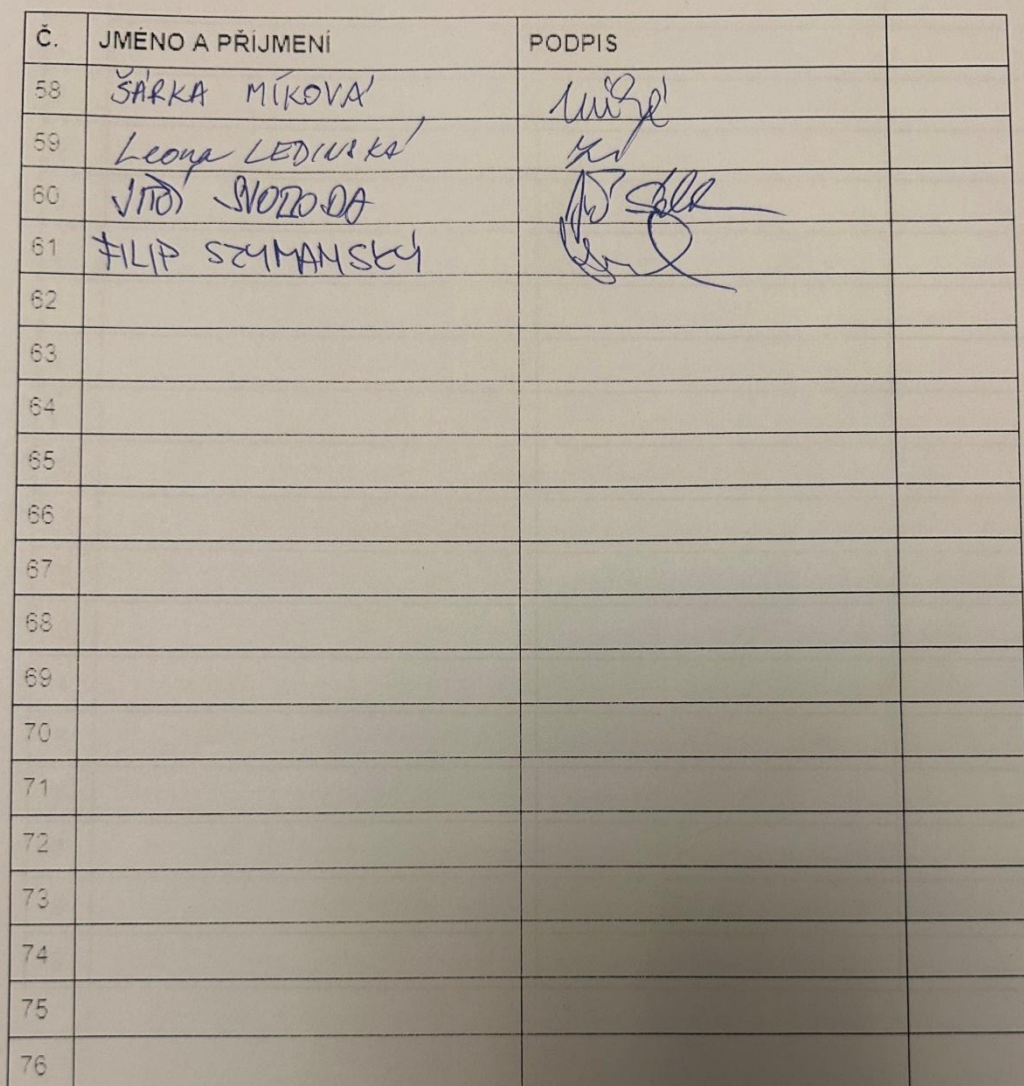 Č. JMÉNO A PŘÍJMENÍ PODPIS
58 ŠÁRKA MÍKOVÁ
59 Leona LEDINSKÁ
60 JIŘÍ SVOBODA
61 FILIP SZYMANSKÝ
62
63
64
65
66
67
68
69
70
71
72
73
74
75
76